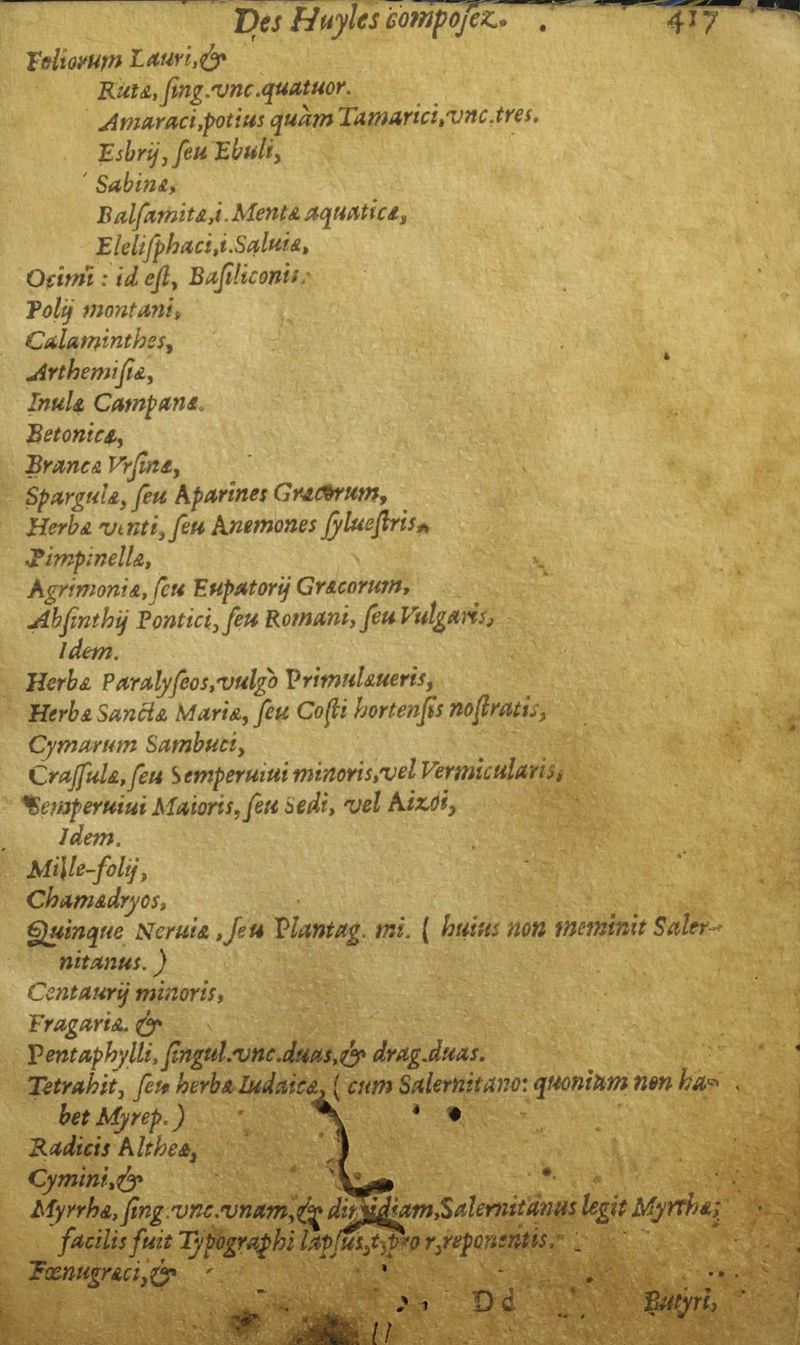 Des Huyles composez. 417
Foliorum Lauri, &
Rutæ, sing. vnc. quatuor.
Amaraci, potius quàm Tamarici, vnc. tres.
Esbrij, seu Ebuli,
Sabinæ,
Balsamitæ, i. Mentæ aquaticæ,
Elelisphaci, i. Saluiæ,
Ocimi : id est, Basiliconis.
Polij montani,
Calaminthes,
Arthemisiæ,
Inulæ Campanæ.
Betonicæ,
Brancæ Vrsinæ,
Spargulæ, seu Aparines Græcorum,
Herbæ venti, seu Anemones syluestris,
Pimpinellæ,
Agrimoniæ, seu Eupatorij Græcorum,
Absinthij Pontici, seu Romani, seu Vulgaris,
Idem.
Herbæ Paralyseos, vulgò Primulæueris,
Herbæ Sanctæ Mariæ, seu Costi hortensis nostratis,
Cymarum Sambuci,
Crassulæ, seu Semperuiui minoris, vel Vermicularis,
Semperuiui Maioris, seu Sedi, vel Aizói,
Idem.
Mille-folij,
Chamædryos,
Quinque Neruiæ, seu Plantag. mi. ( huius non meminit Saler-
nitanus. )
Centaurij minoris,
Fragariæ. &
Pentaphylli, singul. vnc. duas, & drag. duas.
Tetrahit, seu herbæ Iudaicæ, ( cum Salernitano: quoniam non ha-
bet Myrep. )
Radicis Altheæ,
Cymini, &
Myrrhæ, sing. vnc. vnam, & dimidiam, Salernitanus legit Myrthæ;
facilis fuit Typographi lapsus, t, pro r, reponentis.
Fœnugræci, &
Dd Butyri,